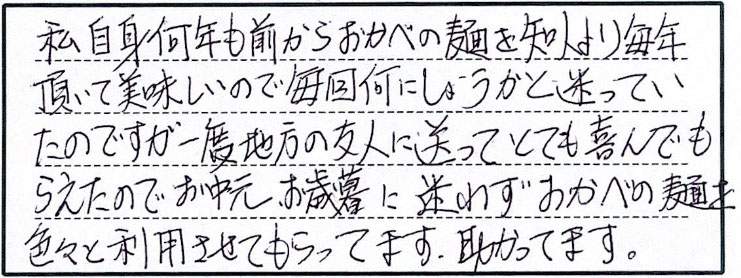 私自身何年も前からおかべの麺を知人より毎年
頂いて美味しいので毎回何にしょうかと迷ってい
たのですが一度地方の友人に送ってとても喜んでも
らえたのでお中元、お歳暮に迷わずおかべの麺を
色々と利用させてもらってます。助かってます。